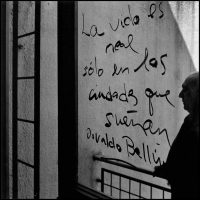 La vida es
real
sólo en las
ciudades que
sueñan
Osvaldo Bellini